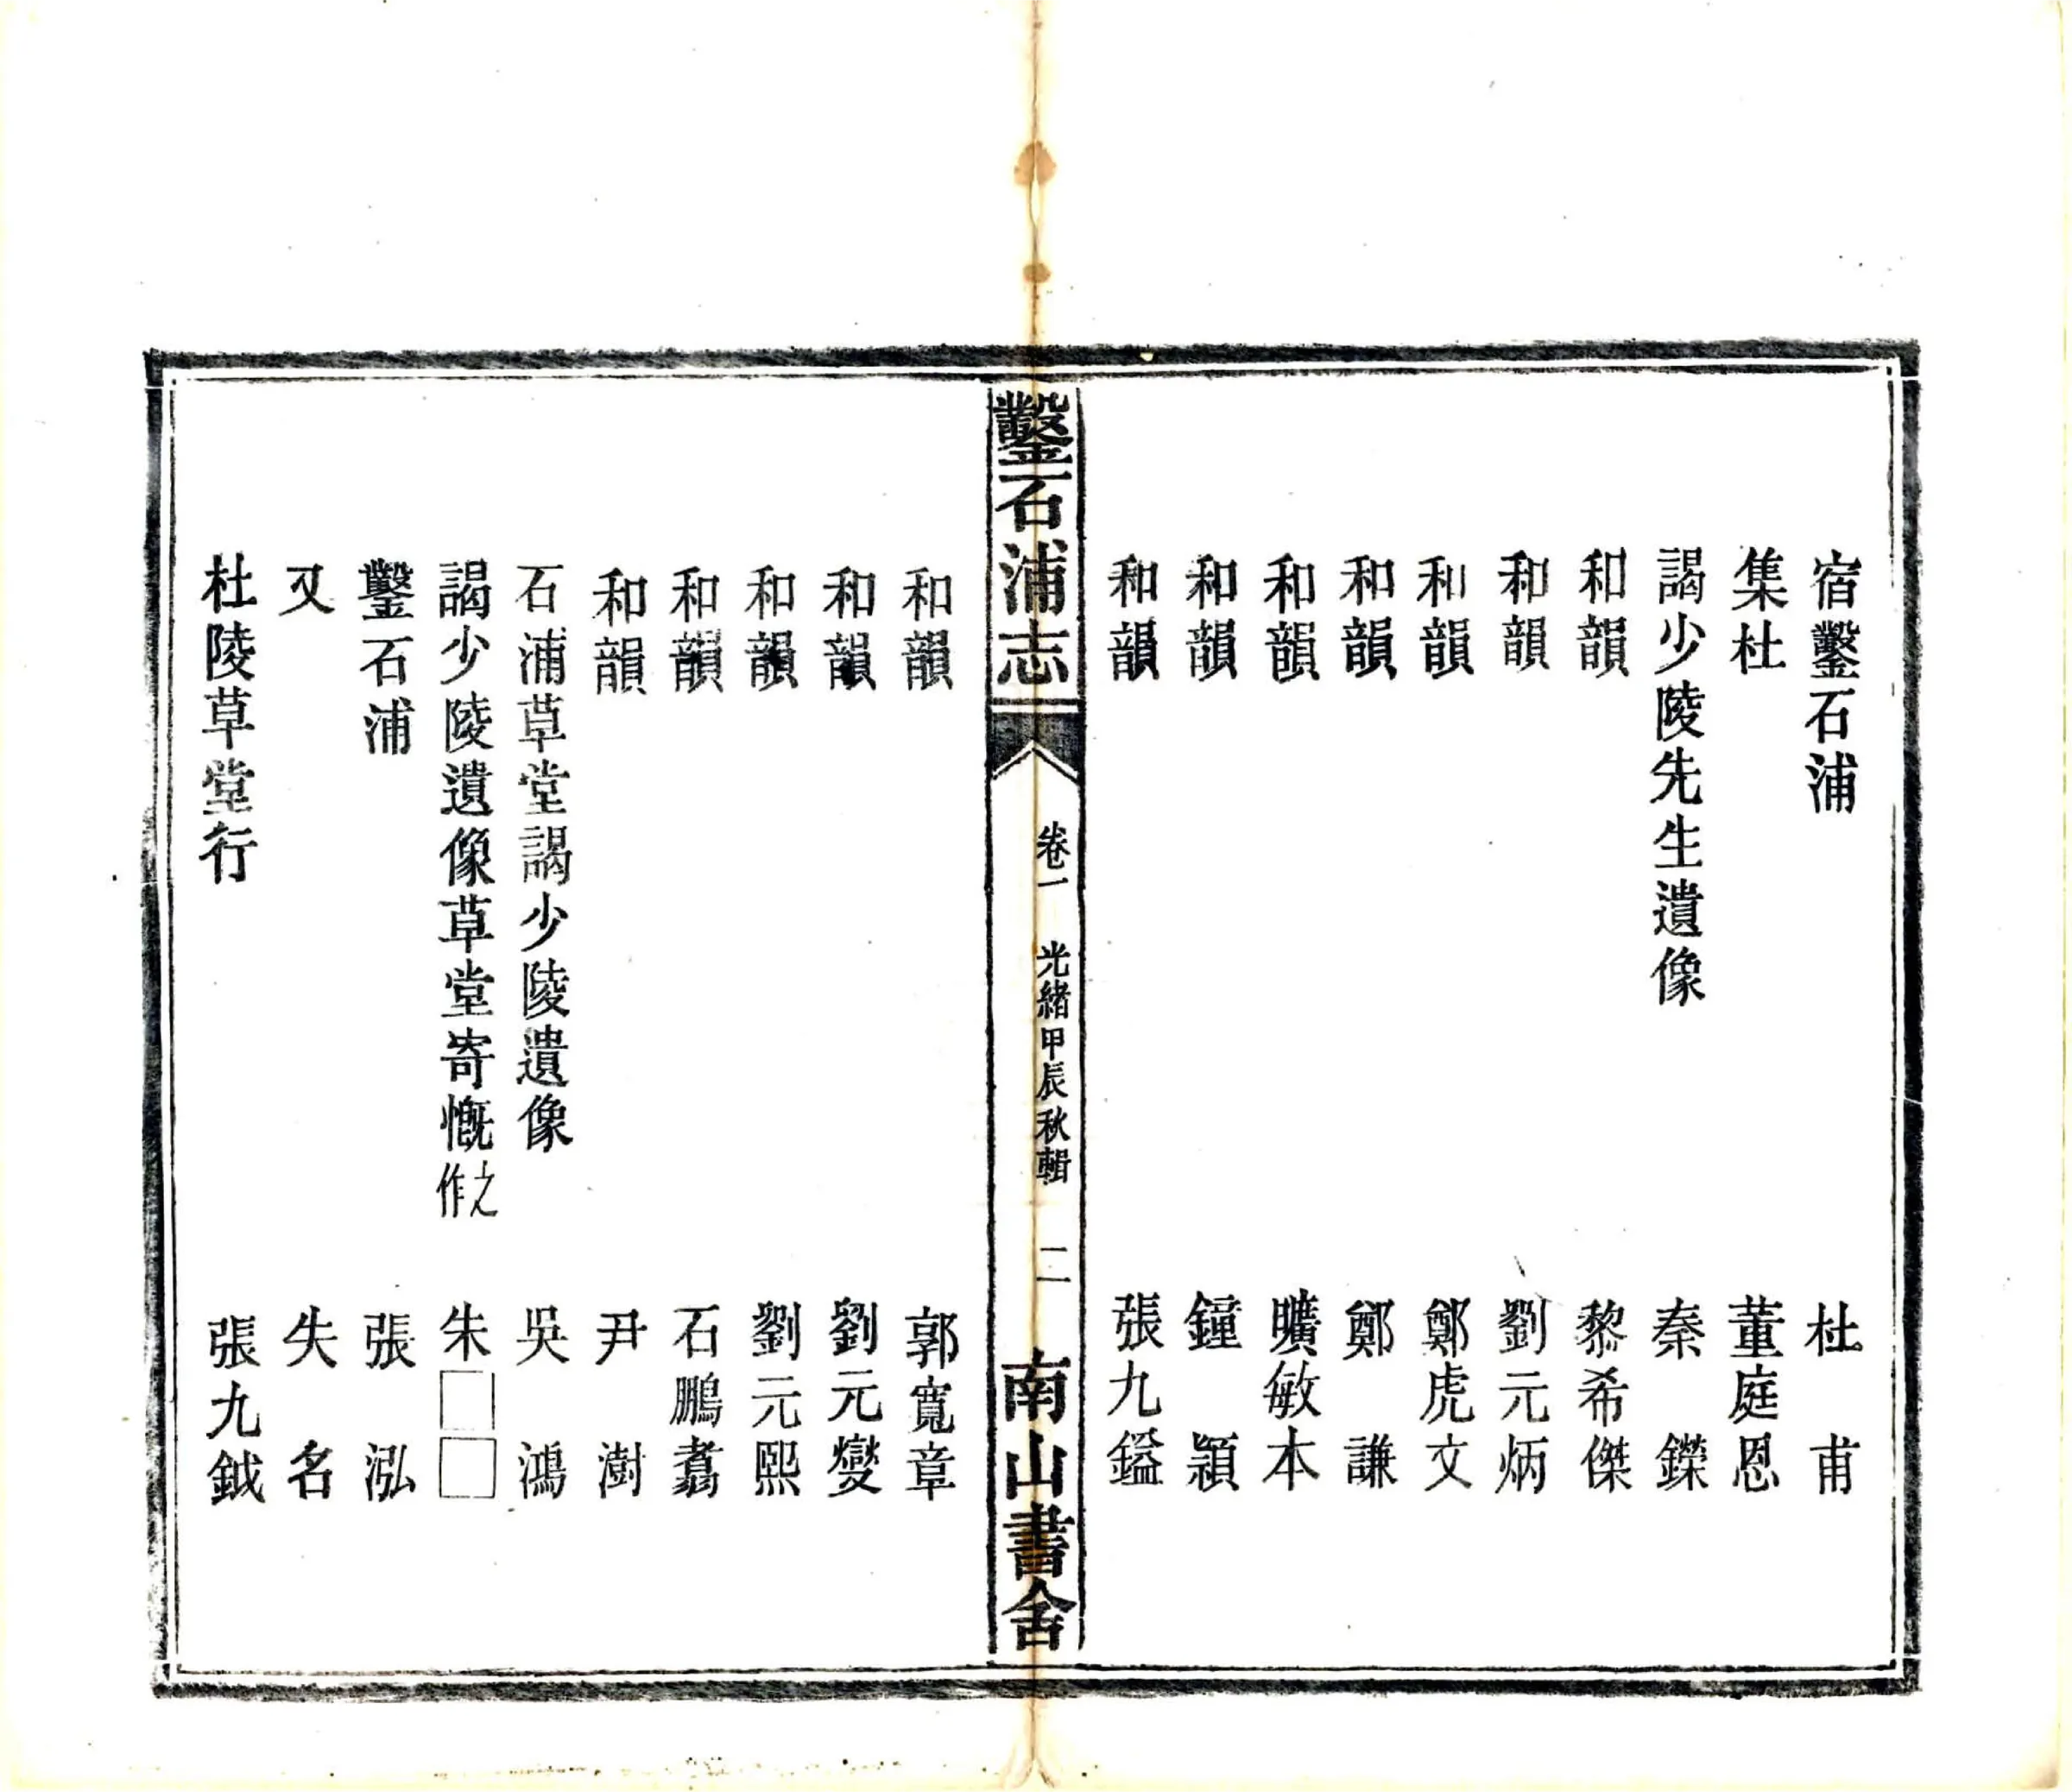 宿鑿石浦 杜甫
集杜 董庭恩
謁少陵先生遺像 秦鑅
和韻 黎希傑
和韻 劉元炳
和韻 鄭虎文
和韻 鄭謙
和韻 曠敏本
和韻 鐘穎
和韻 張九鎰
鑿石浦志 卷一 光緒甲辰秋輯 二 南山書舍
和韻 郭寬章
和韻 劉元燮
和韻 劉元熙
和韻 石鵬翥
和韻 尹澍
石浦草堂謁少陵遺像 吳鴻
謁少陵遺像草堂寄慨之作 朱□□
鑿石浦 張泓
又 失名
杜陵草堂行 張九鉞